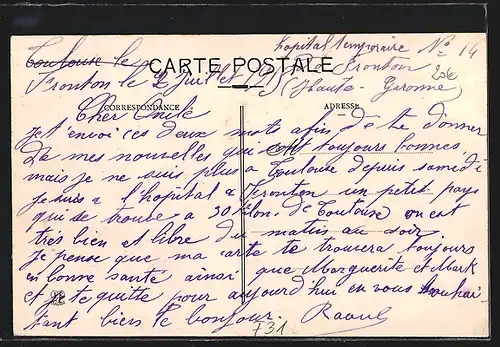 hopital temporaire No 14
Toulouse le
CARTE POSTALE
Fronton le 2 Juillet Fronton
(Haute-Garonne)
CORRESPONDANCE ADRESSE
Cher Oncle
Je t'envoi ces deux mots afin de te donner
De mes nouvelles qui sont toujours bonnes
mais je ne suis plus a Toulouse depuis samedi
je suis a l'hopital a Fronton un petit pays
qui se trouve a 30 Klon. de Toulouse on est
très bien et libre du matin au soir.
Je pense que ma carte te trouvera toujours
en bonne santé ainsi que Marguerite et Mark
et je te quitte pour aujourd'hui en vous souhai
tant bien le bonjour. Raoul
731